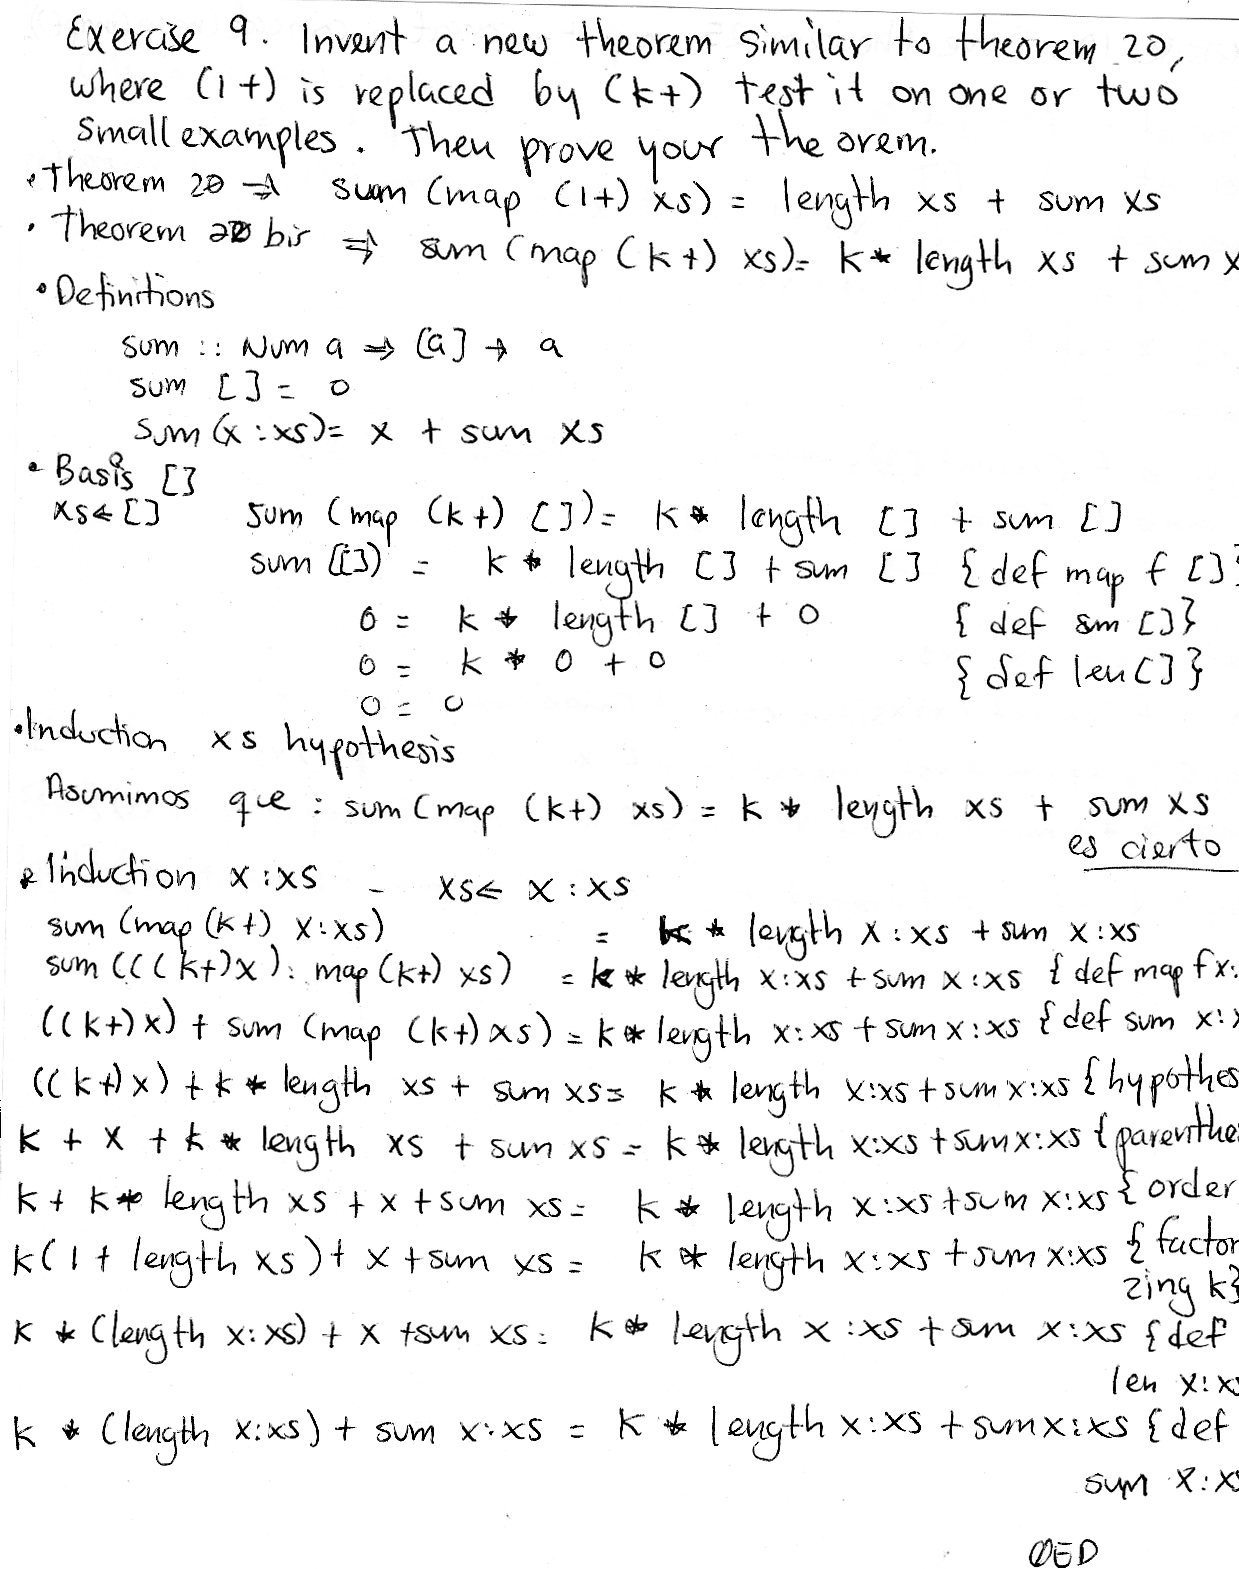 Exercise 9. Invent a new theorem similar to theorem 20,
where (1+) is replaced by (k+) test it on one or two
small examples. Then prove your theorem.
• Theorem 20 ⇒ sum (map (1+) xs) = length xs + sum xs
• Theorem 20 bis ⇒ sum (map (k+) xs) = k * length xs + sum x
• Definitions
sum :: Num a ⇒ [a] → a
sum [] = 0
sum (x:xs) = x + sum xs
• Basis []
xs ← [] sum (map (k+) []) = k * length [] + sum []
sum ([]) = k * length [] + sum [] {def map f []}
0 = k * length [] + 0 {def sum []}
0 = k * 0 + 0 {def len []}
0 = 0
• Induction xs hypothesis
Asumimos que : sum (map (k+) xs) = k * length xs + sum xs
es cierto
• Induction x:xs - xs ← x : xs
sum (map (k+) x:xs) = k * length x:xs + sum x:xs
sum (((k+)x) : map (k+) xs) = k * length x:xs + sum x:xs {def map f x:
((k+)x) + sum (map (k+) xs) = k * length x:xs + sum x:xs {def sum x:x
((k+)x) + k * length xs + sum xs = k * length x:xs + sum x:xs {hypothes
k + x + k * length xs + sum xs = k * length x:xs + sum x:xs {parenthe
k + k * length xs + x + sum xs = k * length x:xs + sum x:xs {order
k(1 + length xs) + x + sum xs = k * length x:xs + sum x:xs {factor
zing k}
k * (length x:xs) + x + sum xs = k * length x:xs + sum x:xs {def
len x:xs
k * (length x:xs) + sum x:xs = k * length x:xs + sum x:xs {def
sum x:xs
QED